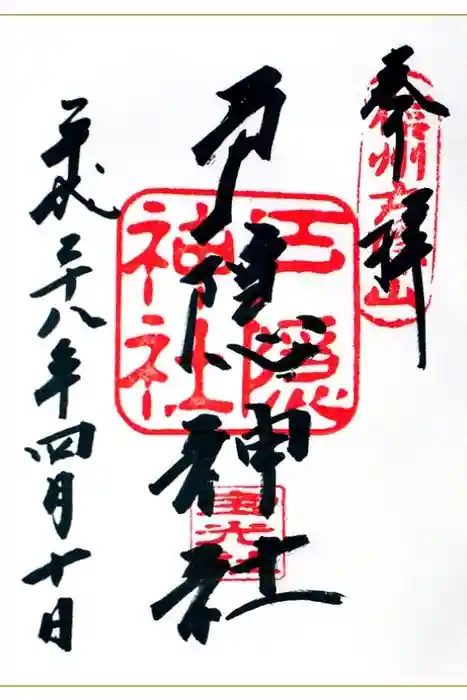 奉拝
信州戸隠山
戸隠神社
戸隠神社
宝光社
平成二十八年四月十日